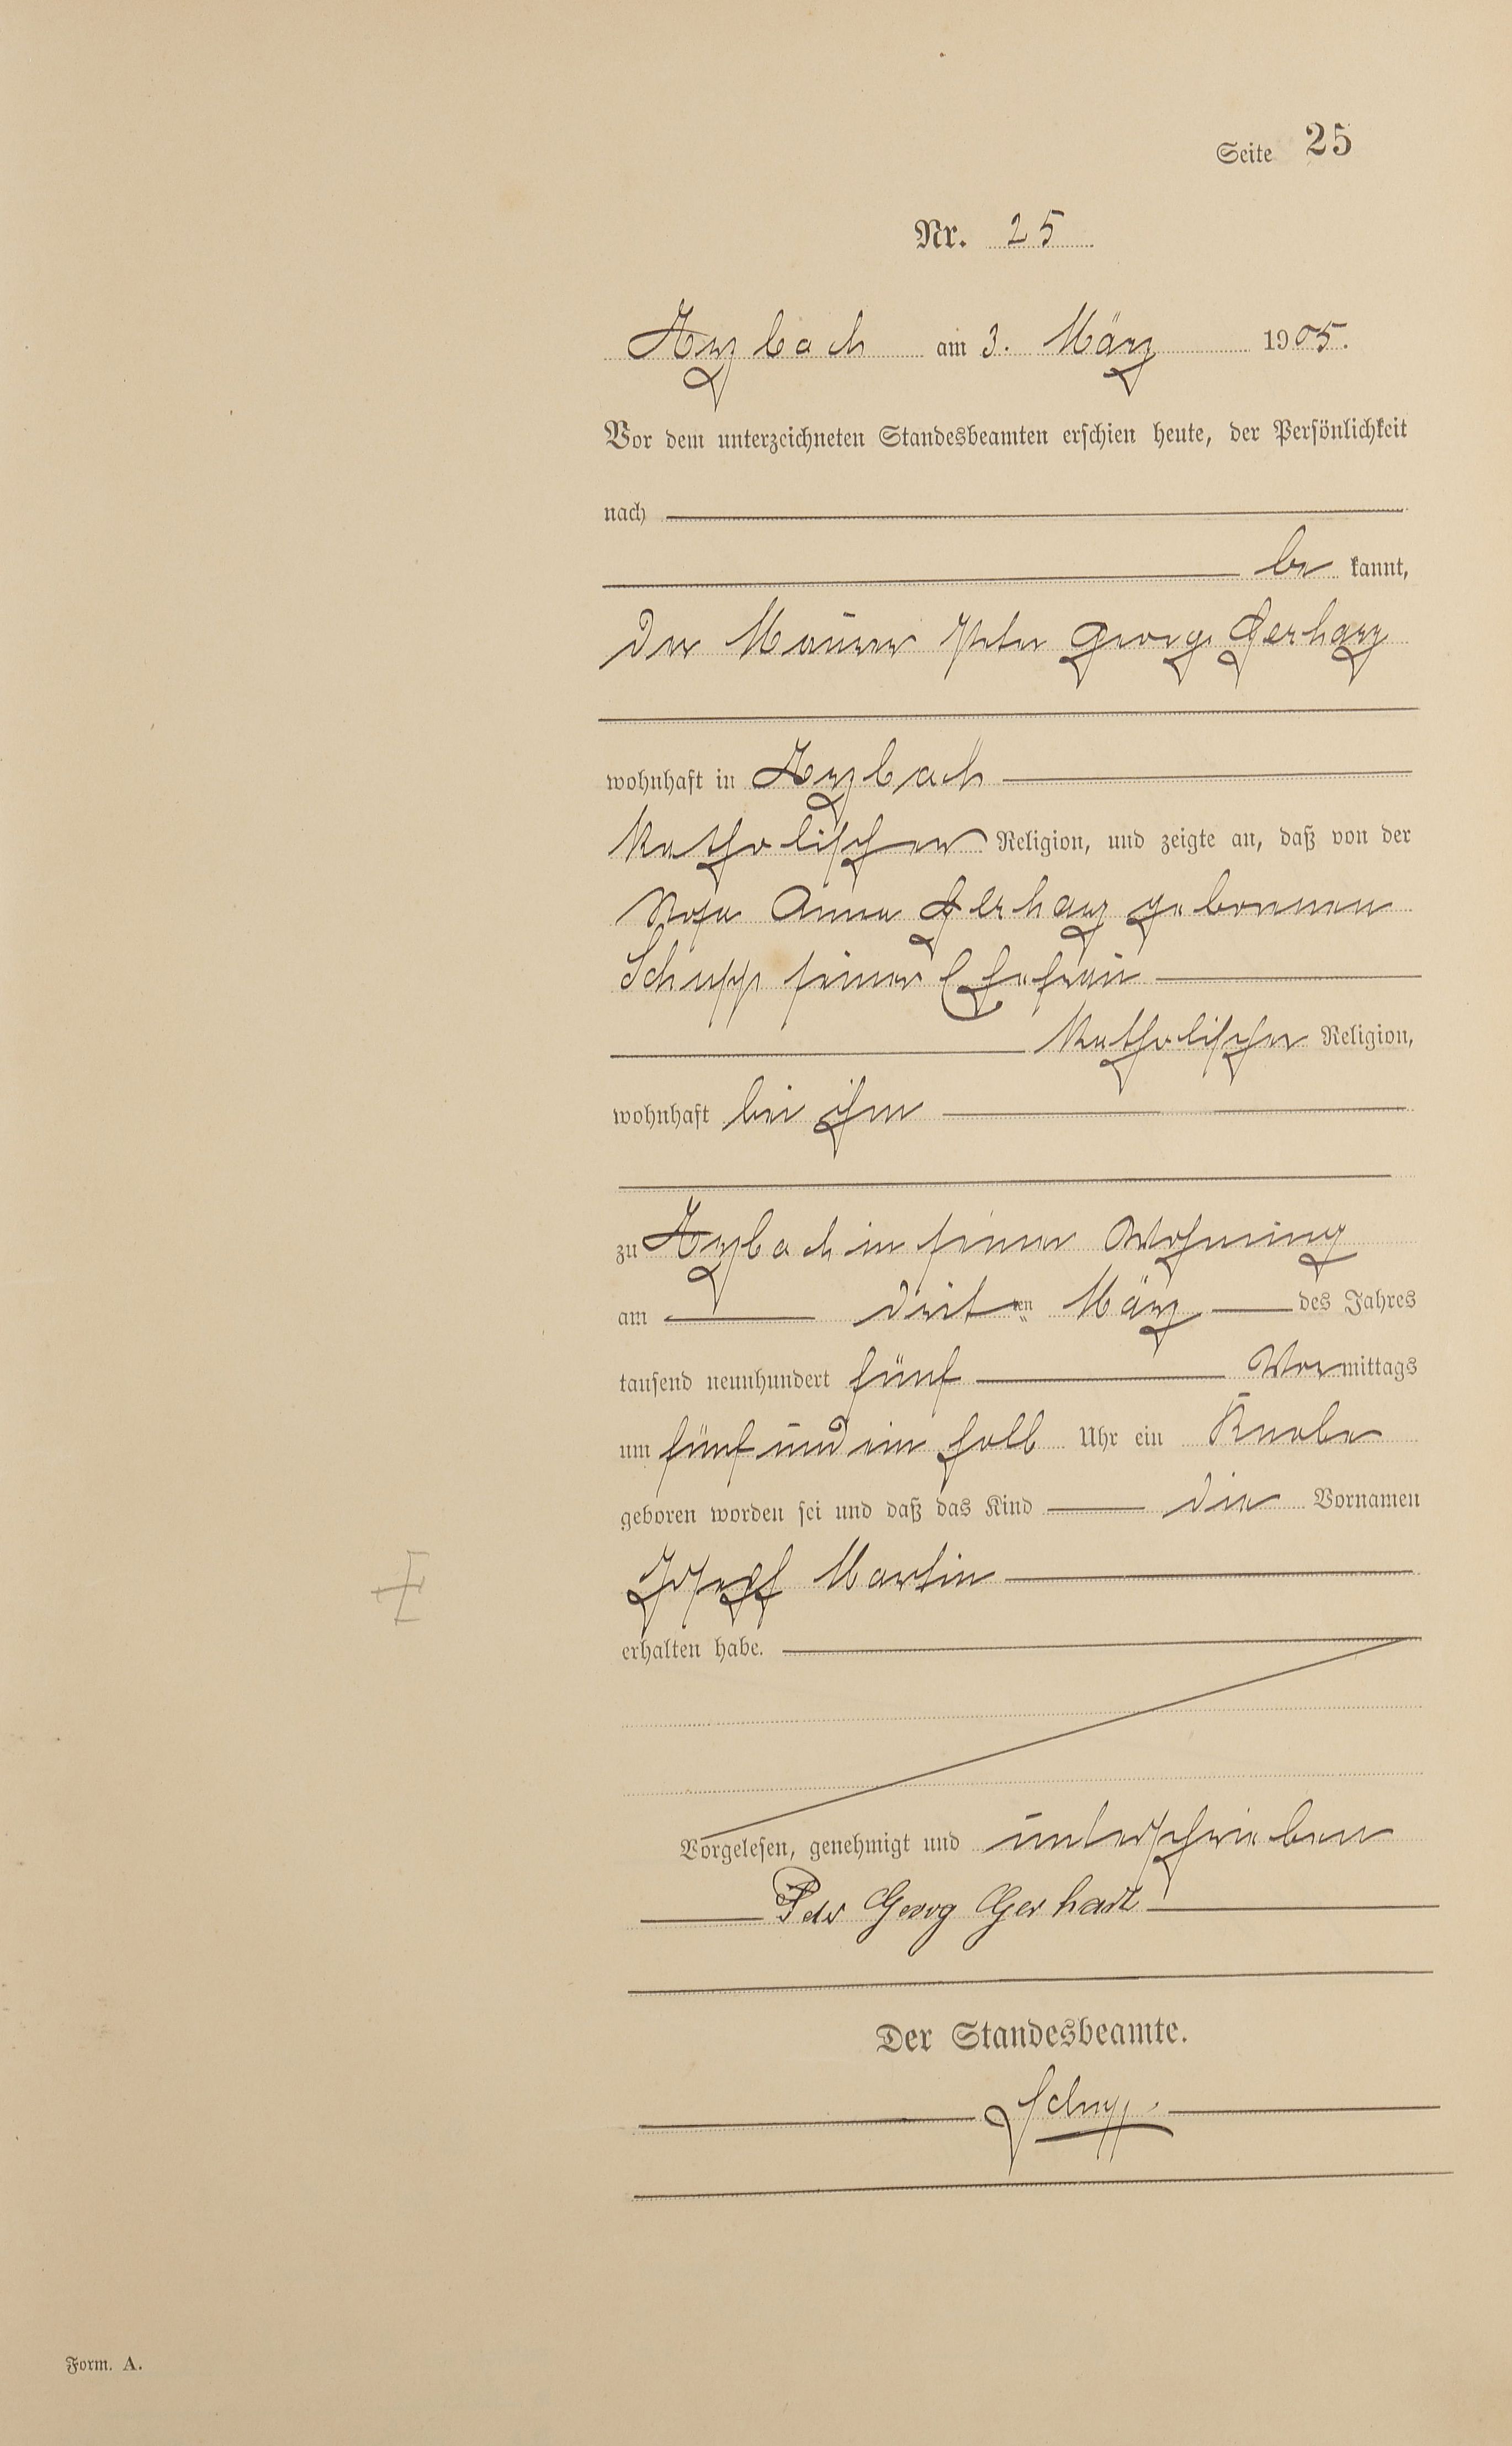 Seite 25
Nr. 25
Arzbach am 3. März 1905.
Vor dem unterzeichneten Standesbeamten erschien heute, der Persönlichkeit
nach
be kannt,
der Maurer Peter Georg Gerharz
wohnhaft in Arzbach
katholischer Religion, und zeigte an, daß von der
Rosa Anna Gerharz geborenen
Schupp seiner Ehefrau
katholischer Religion,
wohnhaft bei ihm
zu Arzbach in seiner Wohnung
am dritten März des Jahres
tausend neunhundert fünf Vormittags
um fünf und ein halb Uhr ein Knabe
geboren worden sei und daß das Kind die Vornamen
Josef Martin
erhalten habe.
Vorgelesen, genehmigt und unterschrieben
Peter Georg Gerharz
Der Standesbeamte.
Schupp.
Form. A.